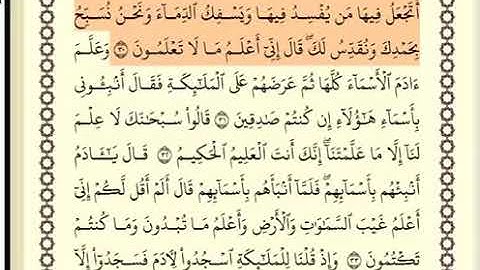 أَتَجْعَلُ فِيهَا مَن يُفْسِدُ فِيهَا وَيَسْفِكُ ٱلدِّمَآءَ وَنَحْنُ نُسَبِّحُ
بِحَمْدِكَ وَنُقَدِّسُ لَكَ ۖ قَالَ إِنِّىٓ أَعْلَمُ مَا لَا تَعْلَمُونَ ٣٠ وَعَلَّمَ
ءَادَمَ ٱلْأَسْمَآءَ كُلَّهَا ثُمَّ عَرَضَهُمْ عَلَى ٱلْمَلَـٰٓئِكَةِ فَقَالَ أَنۢبِـُٔونِى
بِأَسْمَآءِ هَـٰٓؤُلَآءِ إِن كُنتُمْ صَـٰدِقِينَ ٣١ قَالُوا۟ سُبْحَـٰنَكَ لَا عِلْمَ
لَنَآ إِلَّا مَا عَلَّمْتَنَآ ۖ إِنَّكَ أَنتَ ٱلْعَلِيمُ ٱلْحَكِيمُ ٣٢ قَالَ يَـٰٓـَٔادَمُ
أَنۢبِئْهُم بِأَسْمَآئِهِمْ ۖ فَلَمَّآ أَنۢبَأَهُم بِأَسْمَآئِهِمْ قَالَ أَلَمْ أَقُل لَّكُمْ إِنِّىٓ
أَعْلَمُ غَيْبَ ٱلسَّمَـٰوَٰتِ وَٱلْأَرْضِ وَأَعْلَمُ مَا تُبْدُونَ وَمَا كُنتُمْ
تَكْتُمُونَ ٣٣ وَإِذْ قُلْنَا لِلْمَلَـٰٓئِكَةِ ٱسْجُدُوا۟ لِـَٔادَمَ فَسَجَدُوٓا۟ إِلَّآ